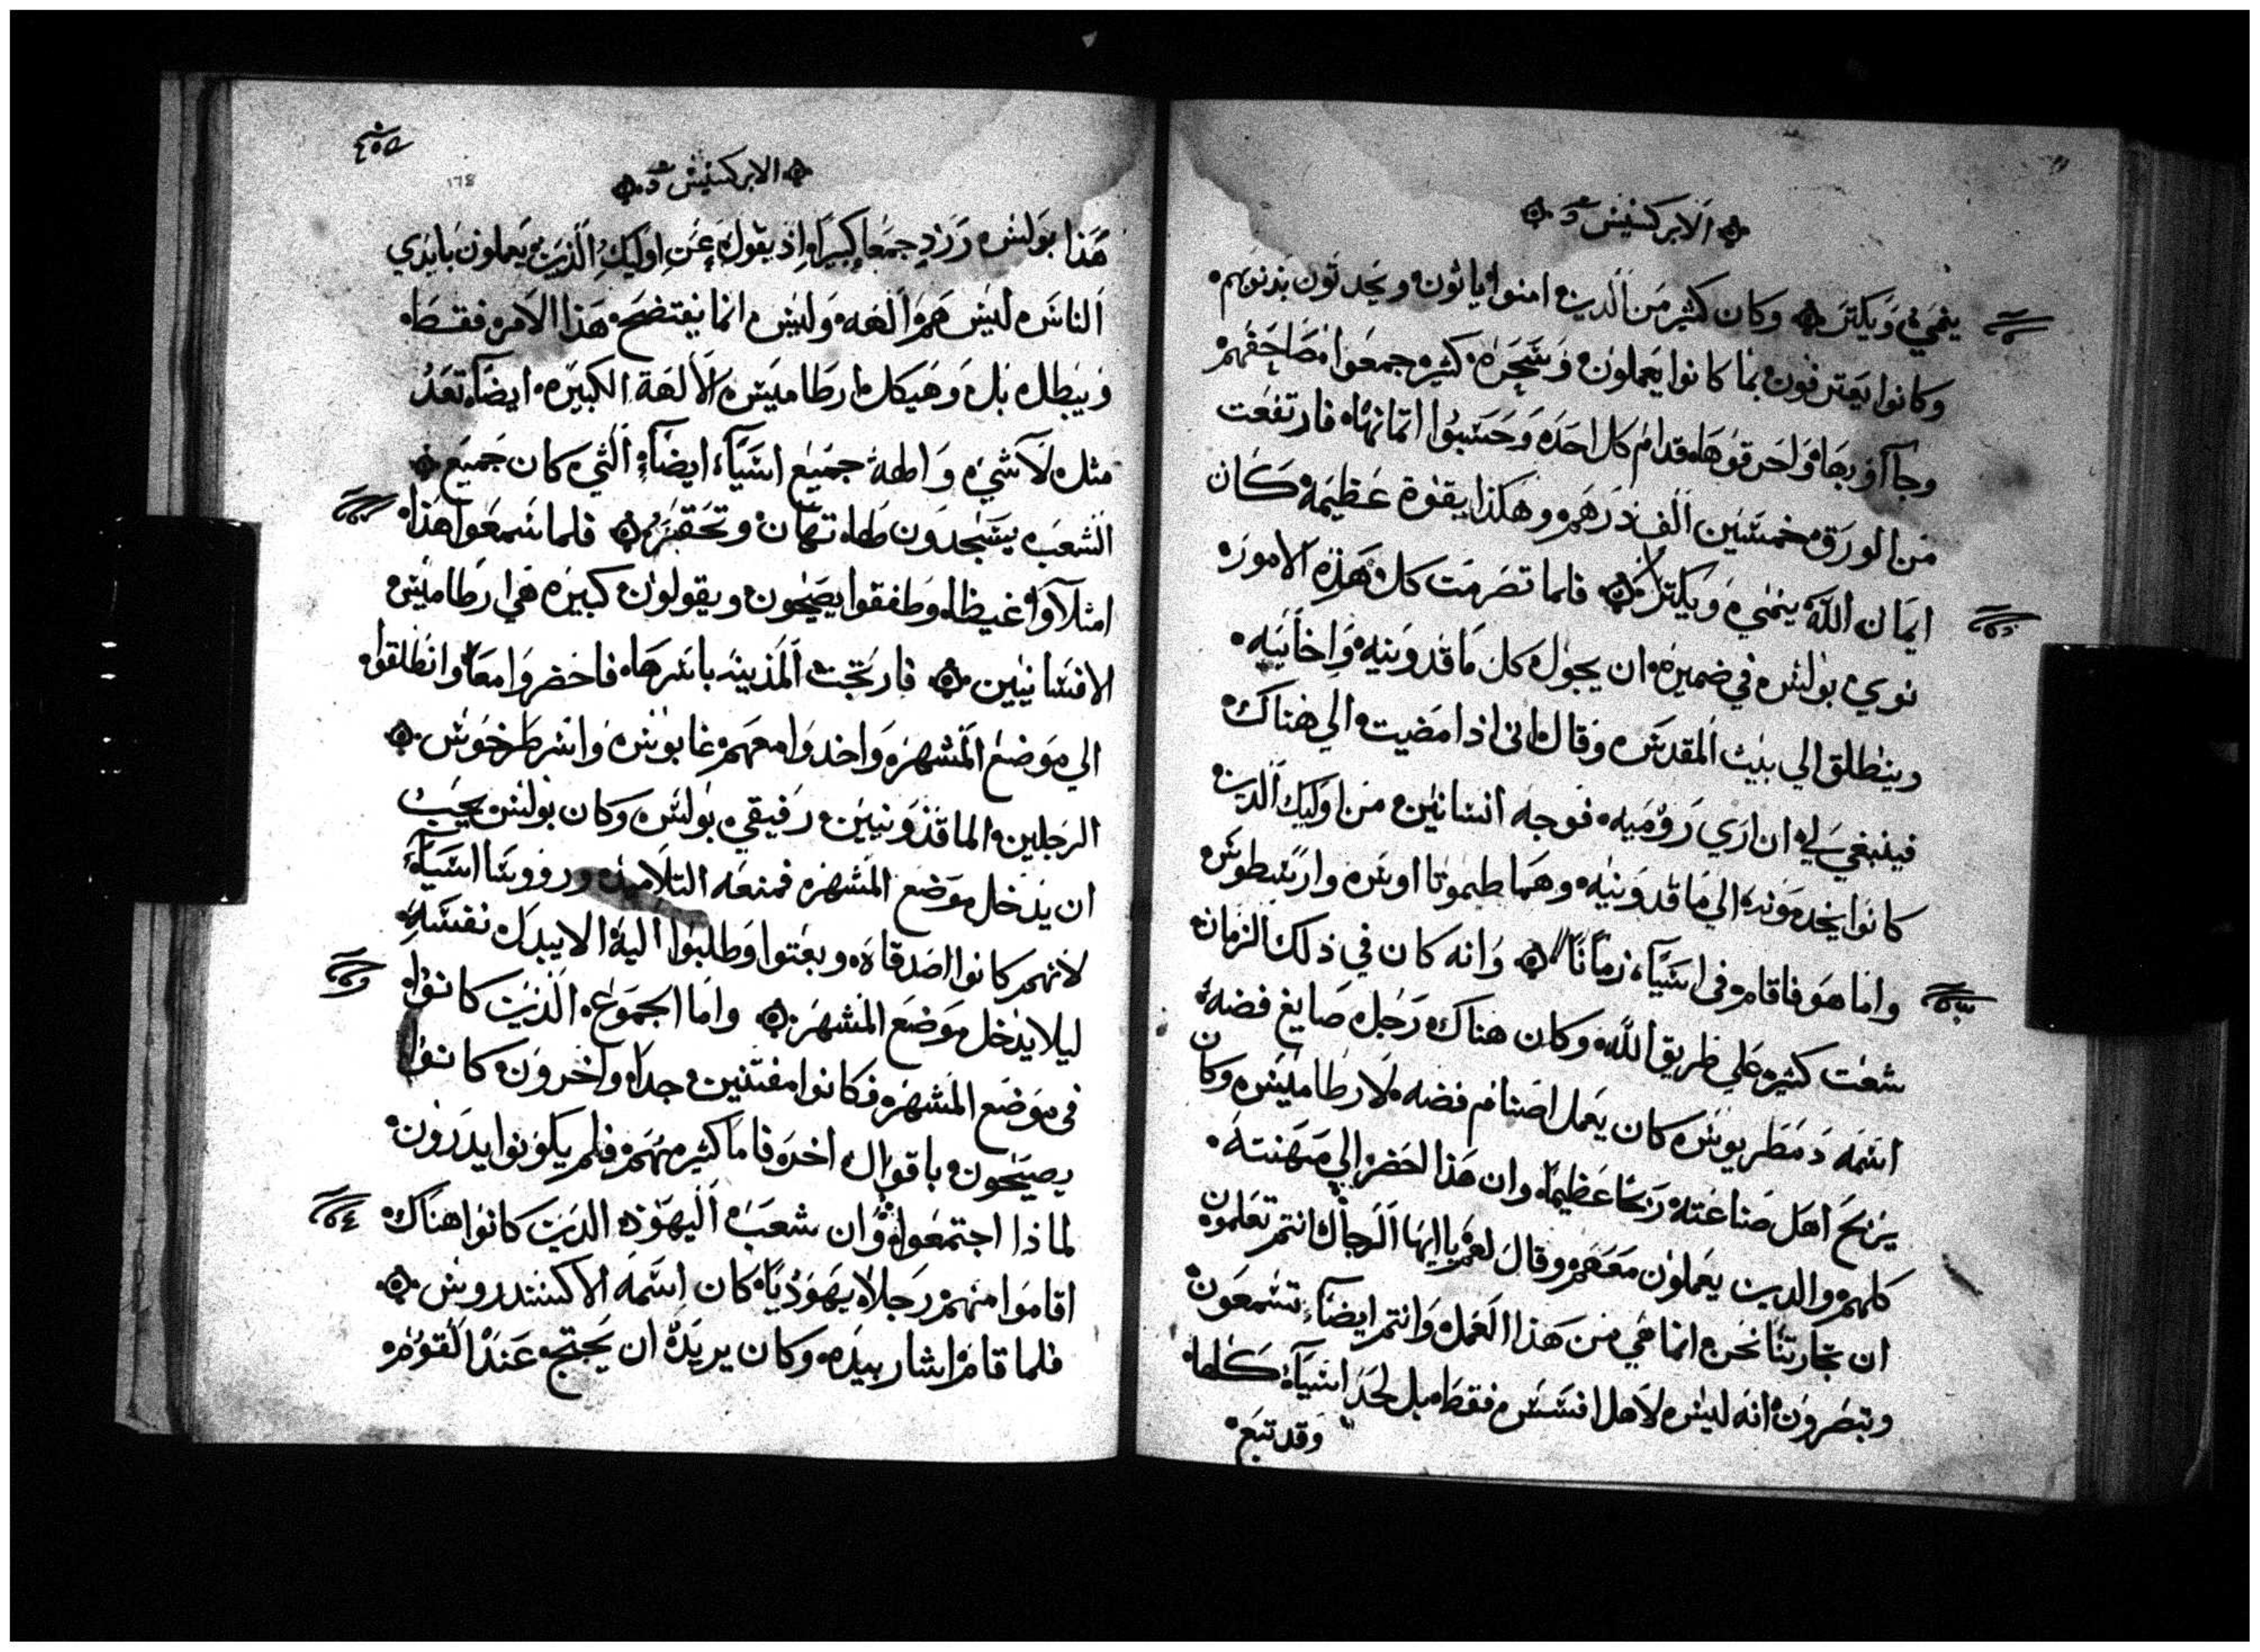 الابركسيس
ينمي ويكتر وكان كثير من الدين امنوا ياتون ويحدتون بدنوبهم
وكانوا يعترفون بما كانوا يعملون وسحره كثيره جمعوا مصاحفهم
وجآاو بها واحرقوها قدام كل احد وحسبوا اتمانها فارتفعت
من الورق خمسين الف درهم وهكذا بقوة عظيمة كان
ايمان الله ينمي ويكتر فلما تصرمت كل هذه الامور
نوي بولس في ضميره ان يجول كل ماقدونيه واخاييه
وينطلق الي بيت المقدس وقال اني اذا مضيت الي هناك
فينبغي لي ان اري روميه فوجه انسانين من اوليك الدين
كانوا يخدمونه الي ماقدونيه وهما طيموتااوس وارسطوس
واما هو فاقام في اسيآ زمانا وانه كان في ذلك الزمان
شعت كثير علي طريق الله وكان هناك رجل صايغ فضه
اسمه دمطريوس كان يعمل اصنام فضه لارطاميس وكان
يربح اهل صناعته ربحا عظيما وان هذا احضر الي مهنته
كلهم والدين يعملون معهم وقال لهم ياايها الرجال انتم تعلمون
ان تجارتنا نحن انما هي من هذا العمل وانتم ايضآ تسمعون
وتبصرون انه ليس لاهل افسس فقط بل لحد اسيآ كلها
وقد تبع
٤٥٥
178
الابركسيس
هذا بولس ورد جمعا كبيرا اذ يقول عن اوليك الذين يعملون بايدي
الناس ليس هم الهه وليس انما يفتضح هذا الامر فقط
ويبطل بل وهيكل ارطاميس الالهة الكبيره ايضآ تعد
مثل لاشي واطهة جميع اسيآ ايضآ التي كان جميع
الشعب يسجدون لها تهان وتحقر فلما سمعوا هذا
امتلآوا غيظا وطفقوا يصيحون ويقولون كبيره هي ارطاميس
الافسانيين فارتجت المدينه باسرها فاحضروا معا وانطلقوا
الي موضع المشهر واخدوا معهم غايوس وارسطرخوس
الرجلين الماقدونيين رفيقي بولس وكان بولس يحب
ان يدخل موضع المشهر فمنعه التلاميد وروسا اسيآ
لانهم كانوا اصدقاه وبعتوا وطلبوا اليه الا يبدل نفسه
ليلا يدخل موضع المشهر واما الجموع الذين كانوا
في موضع المشهر فكانوا مفتنين جدا واخرون كانوا
يصيحون باقوال اخر فاما كثير منهم فلم يكونوا يدرون
لماذا اجتمعوا وان شعب اليهود الدين كانوا هناك
اقاموا منهم رجلا يهوديا كان اسمه الاكسندروس
فلما قام اشار بيده وكان يريد ان يحتج عند القوم